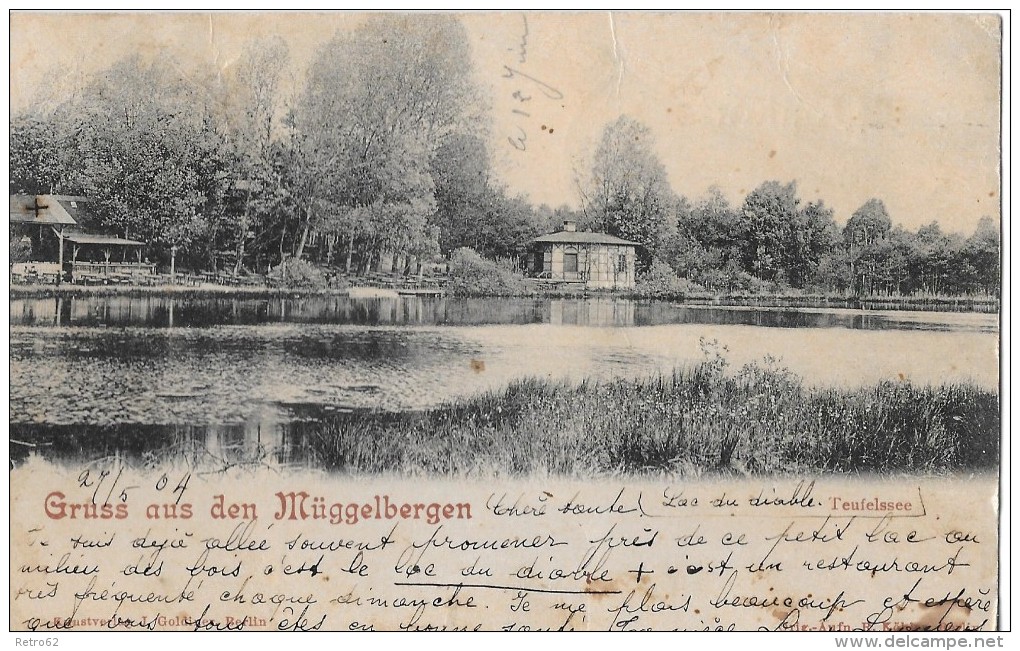 le 12 Juin
27/5 04
Gruss aus den Müggelbergen Chère tante! (Lac du diable. Teufelssee)
Je suis dejà allée souvent promener près de ce petit lac au
milieu des bois c'est le lac du diable + ici c'est un restaurant
très fréquenté chaque dimanche. Je me plais beaucoup et espère
que vous tous êtes en bonne santé
Kunstverlag J. Goldiner, Berlin
Retro62
delcampe.net